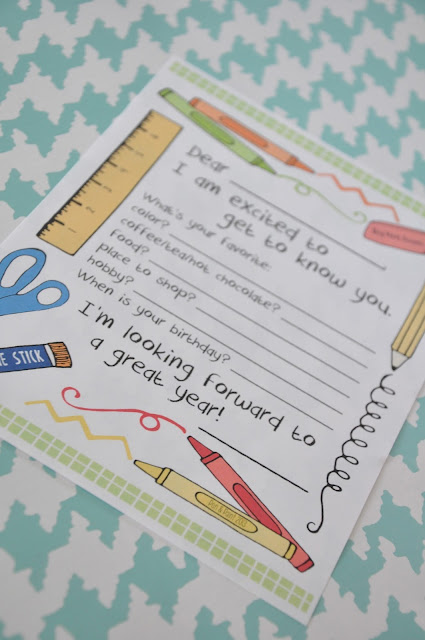 Dear
I am excited to
get to know you.
What's your favorite:
color?
coffee/tea/hot chocolate?
food?
place to shop?
hobby?
When is your birthday?
I'm looking forward to
a great year!
E STICK